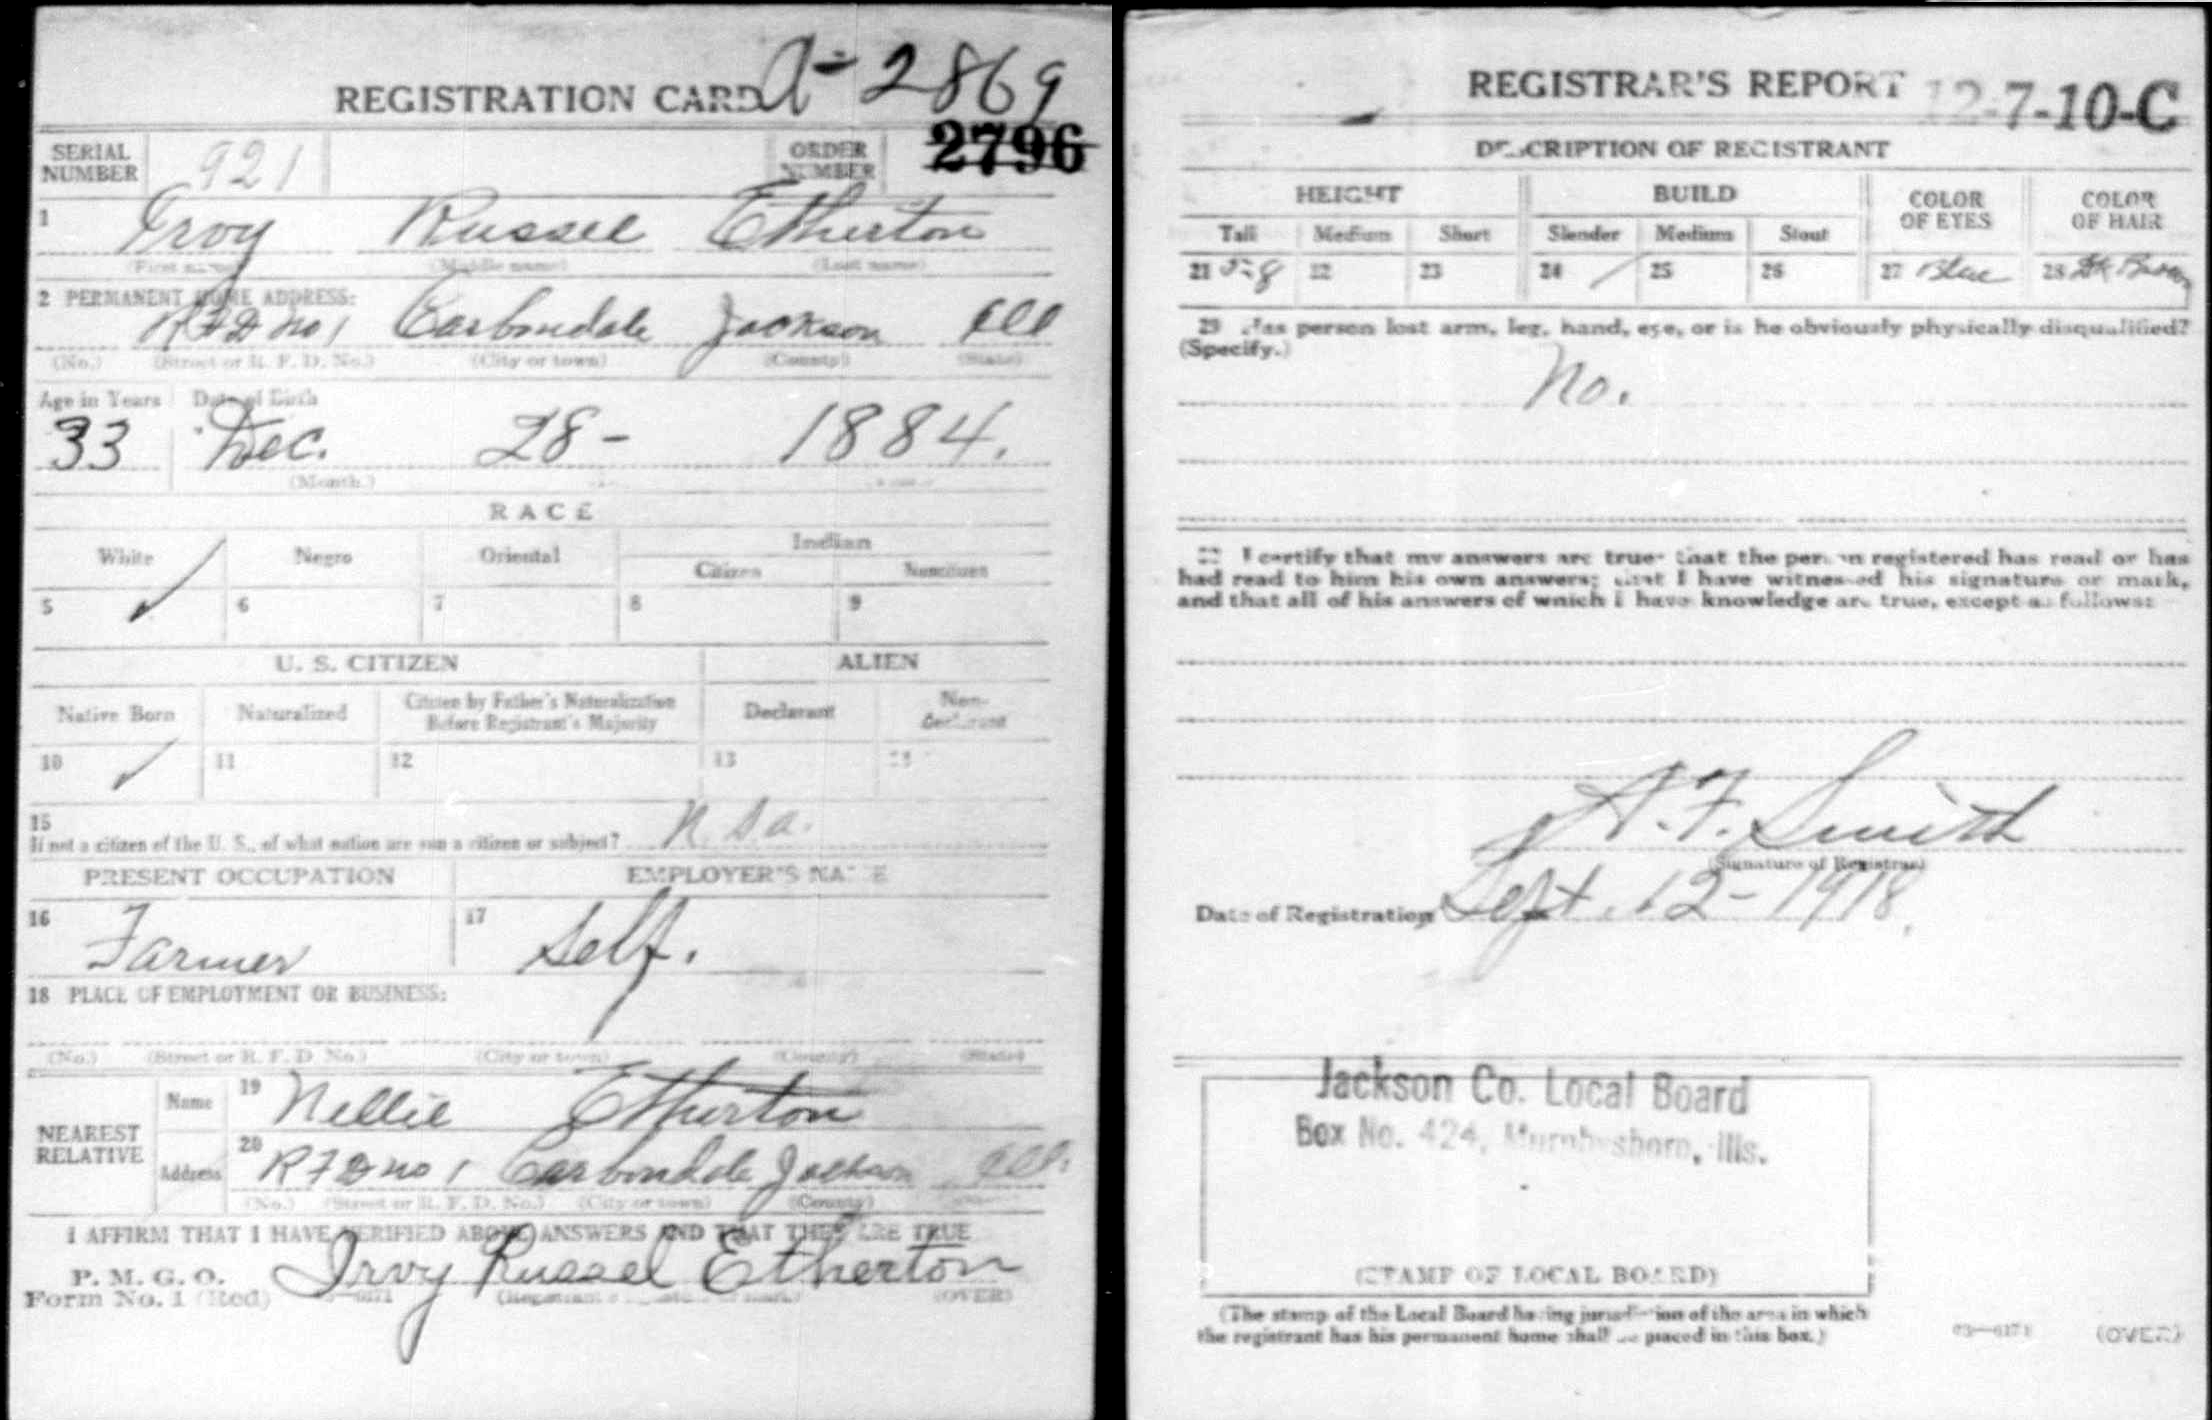 REGISTRATION CARD A-2869
SERIAL NUMBER 921 ORDER NUMBER 2796
1 Irvy Russel Etherton
(First name) (Middle name) (Last name)
2 PERMANENT HOME ADDRESS:
R F D no 1 Carbondale Jackson Ill
(No.) (Street or R. F. D. No.) (City or town) (County) (State)
Age in Years Date of Birth
33 Dec. 28- 1884.
(Month.)
RACE
White Negro Oriental Indian
Citizen Noncitizen
5 ✓ 6 7 8 9
U. S. CITIZEN ALIEN
Native Born Naturalized Citizen by Father's Naturalization Before Registrant's Majority Declarant Non-declarant
10 ✓ 11 12 13 14
15
If not a citizen of the U. S., of what nation are you a citizen or subject?
PRESENT OCCUPATION EMPLOYER'S NAME
16 Farmer 17 Self.
18 PLACE OF EMPLOYMENT OR BUSINESS:
(No.) (Street or R. F. D. No.) (City or town) (County) (State)
NEAREST RELATIVE
Name 19 Nellie Etherton
Address 20 R F D no 1 Carbondale Jackson Ill.
(No.) (Street or R. F. D. No.) (City or town) (County)
I AFFIRM THAT I HAVE VERIFIED ABOVE ANSWERS AND THAT THEY ARE TRUE
P. M. G. O.
Form No. 1 (Red) Irvy Russel Etherton
(OVER)
REGISTRAR'S REPORT 12-7-10-C
DESCRIPTION OF REGISTRANT
HEIGHT BUILD COLOR OF EYES COLOR OF HAIR
Tall Medium Short Slender Medium Stout
21 5-8 22 23 24 / 25 26 27 Blue 28 Dk Brown
29 Has person lost arm, leg, hand, eye, or is he obviously physically disqualified?
(Specify.)
No.
I certify that my answers are true; that the person registered has read or has
had read to him his own answers; that I have witnessed his signature or mark,
and that all of his answers of which I have knowledge are true, except as follows:
Smith
(Signature of Registrar)
Date of Registration Sept. 12-1918.
Jackson Co. Local Board
Box No. 424, Murphysboro, Ills.
(STAMP OF LOCAL BOARD)
(The stamp of the Local Board having jurisdiction of the area in which
the registrant has his permanent home shall be placed in this box.)
03-6171 (OVER)